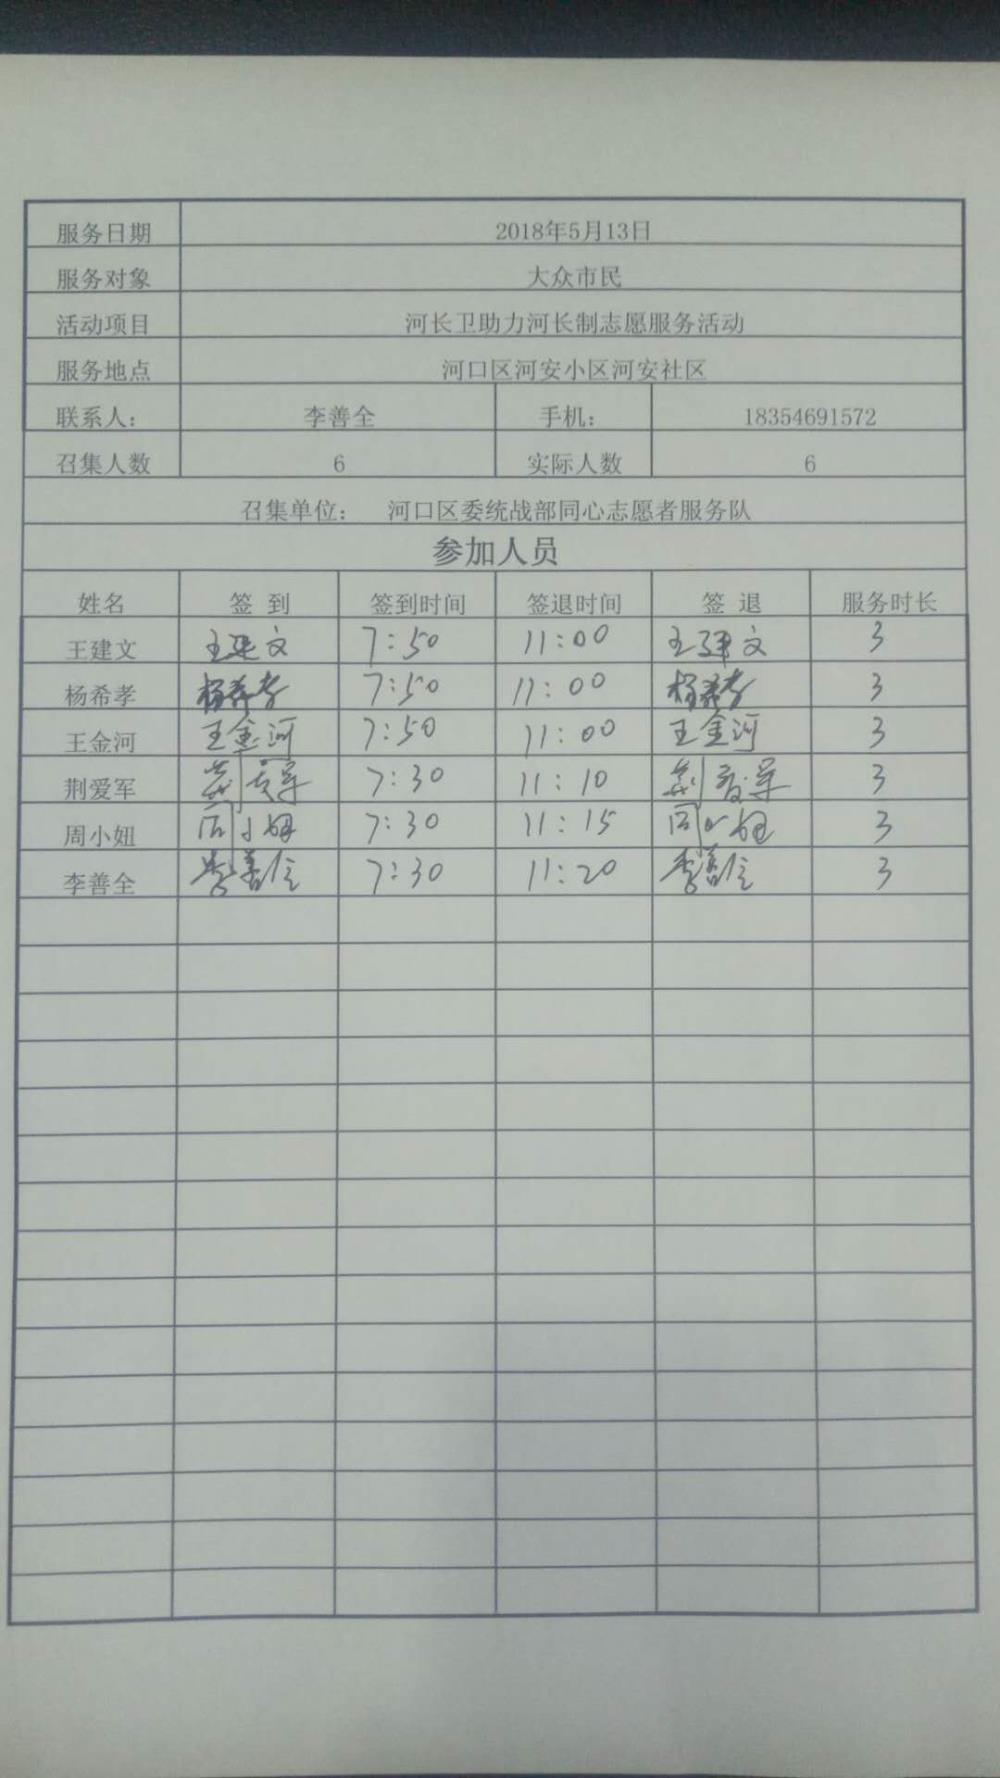 服务日期 2018年5月13日
服务对象 大众市民
活动项目 河长卫助力河长制志愿服务活动
服务地点 河口区河安小区河安社区
联系人: 李善全 手机: 18354691572
召集人数 6 实际人数 6
召集单位: 河口区委统战部同心志愿者服务队
参加人员
姓名 签 到 签到时间 签退时间 签 退 服务时长
王建文 王建文 7:50 11:00 王建文 3
杨希孝 杨希孝 7:50 11:00 杨希孝 3
王金河 王金河 7:50 11:00 王金河 3
荆爱军 荆爱军 7:30 11:10 荆爱军 3
周小妞 周小妞 7:30 11:15 周小妞 3
李善全 李善全 7:30 11:20 李善全 3